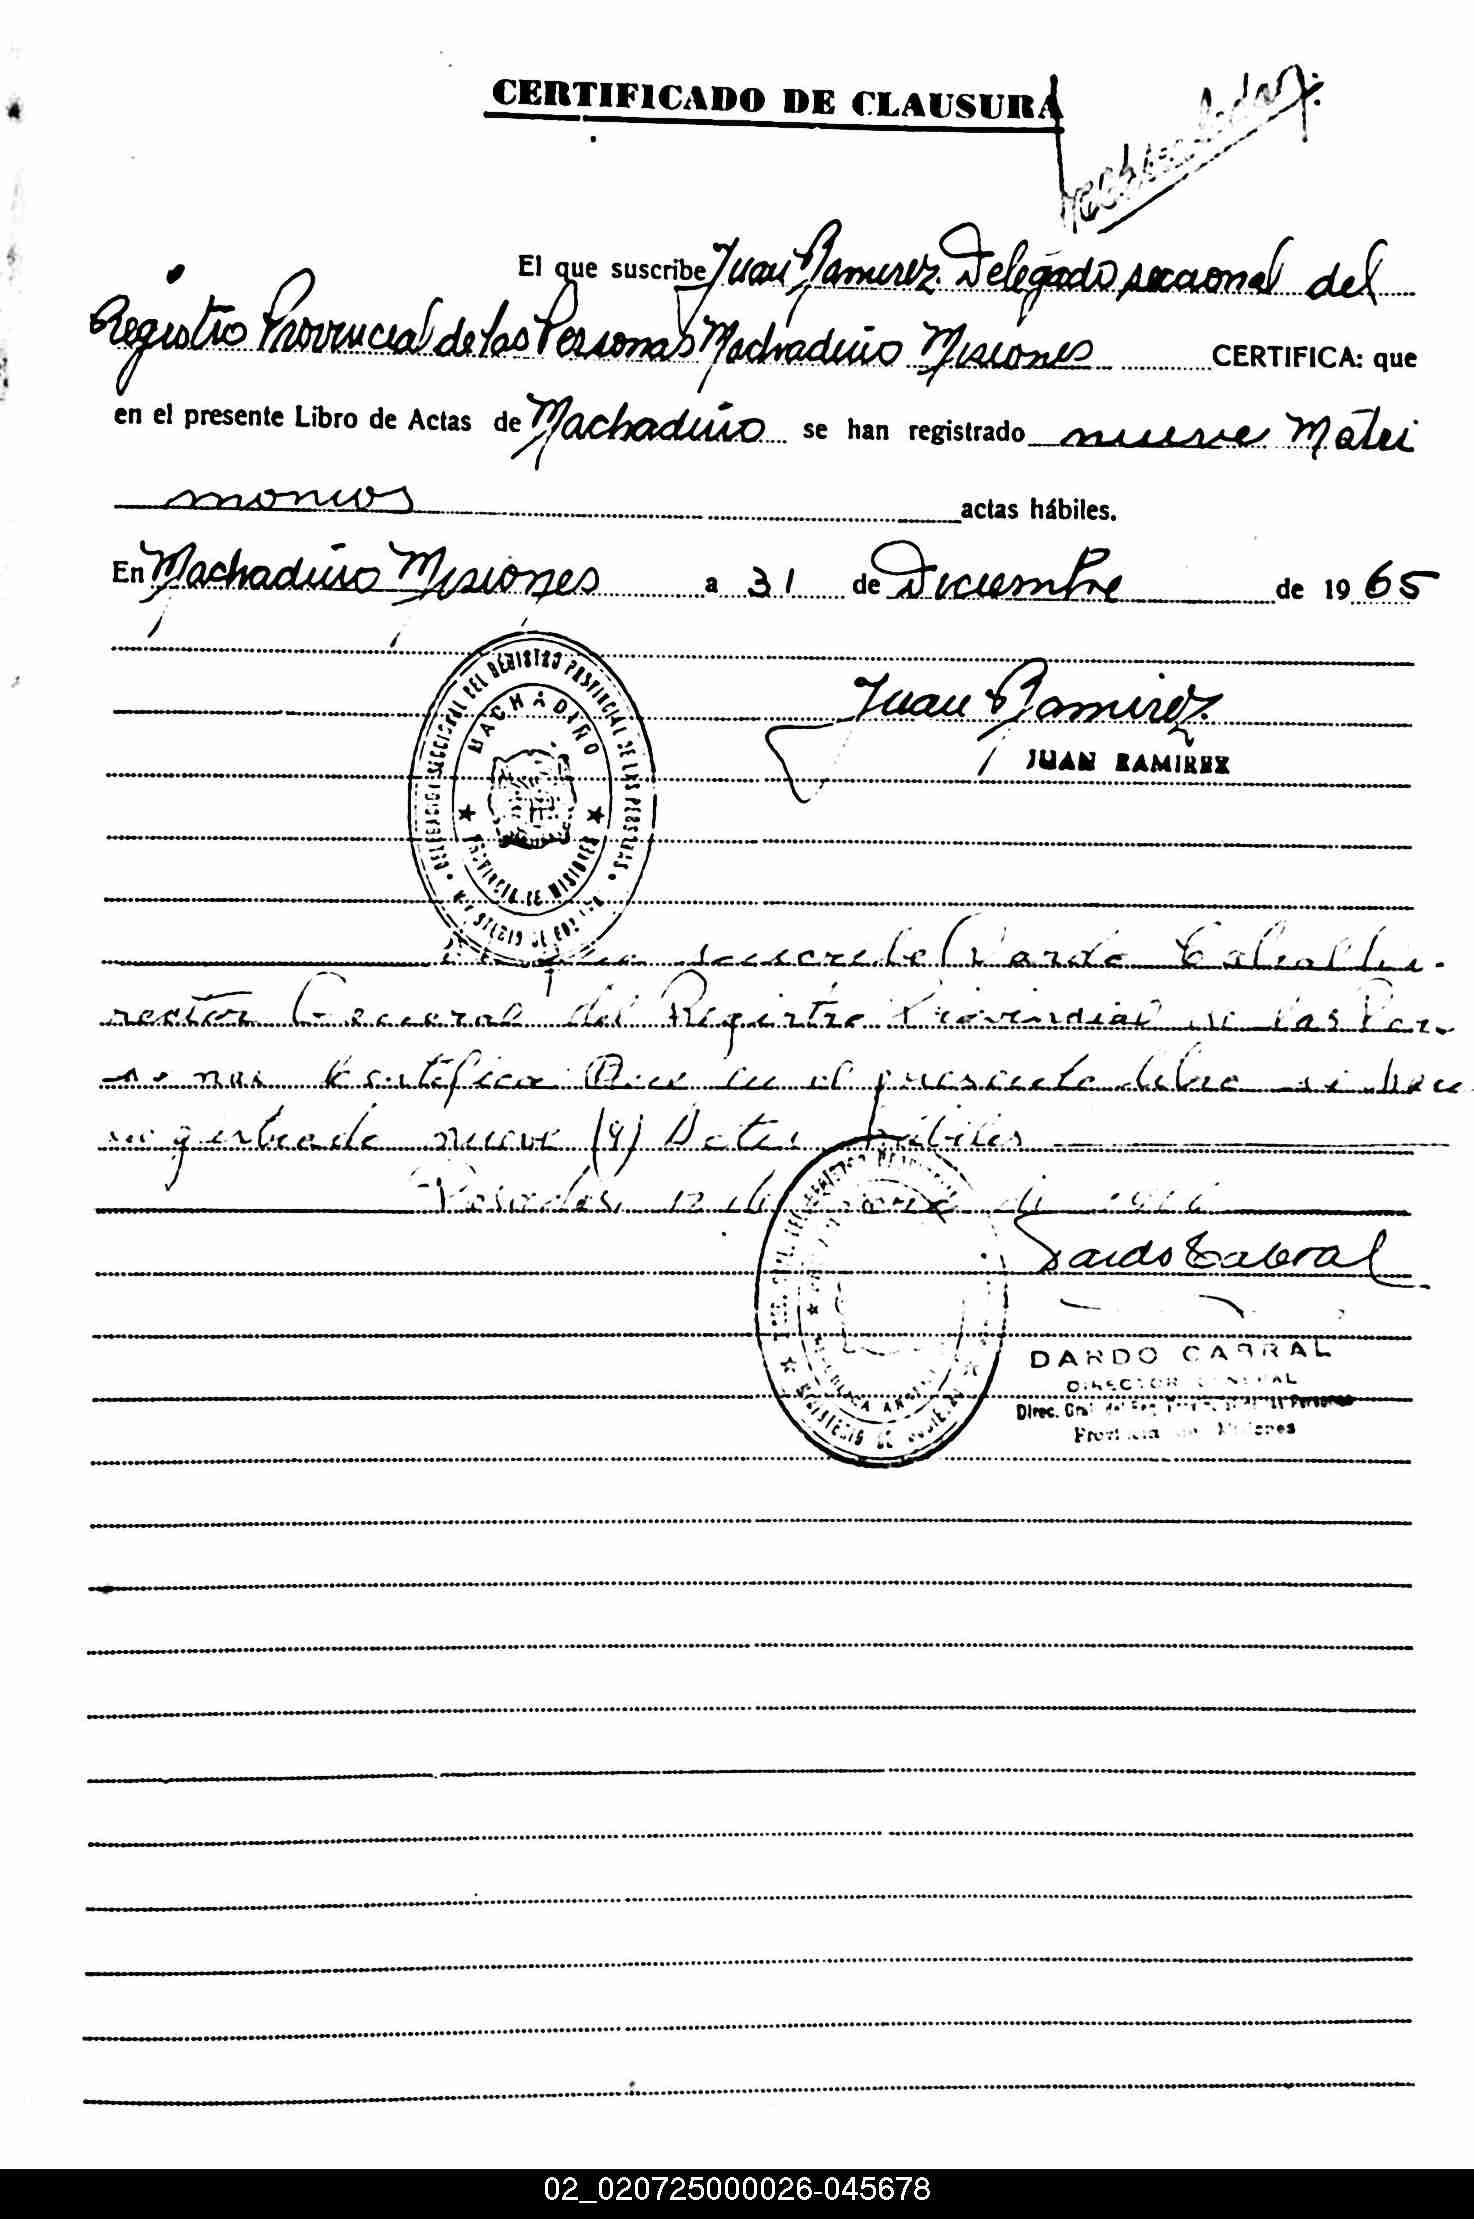 CERTIFICADO DE CLAUSURA
El que suscribe Juan Ramirez Delegado seccional del
Registro Provincial de las Personas Machadiño Misiones CERTIFICA: que
en el presente Libro de Actas de Machadiño se han registrado nueve Matri
monios actas hábiles.
En Machadiño Misiones a 31 de Diciembre de 1965
DELEGACION SECCIONAL DEL REGISTRO PROVINCIAL DE LAS PERSONAS
MACHADIÑO
PROVINCIA DE MISIONES
Juan Ramirez
JUAN RAMIREZ
suscribe Dardo Cabral Di-
rector General del Registro Provincial de las Per-
sonas Certifica Que en el presente libro se han
registrado nueve (9) Actas hábiles
Posadas, 12 de de 1966
Dardo Cabral
DARDO CABRAL
DIRECTOR GENERAL
Provincia de Misiones
02_020725000026-045678